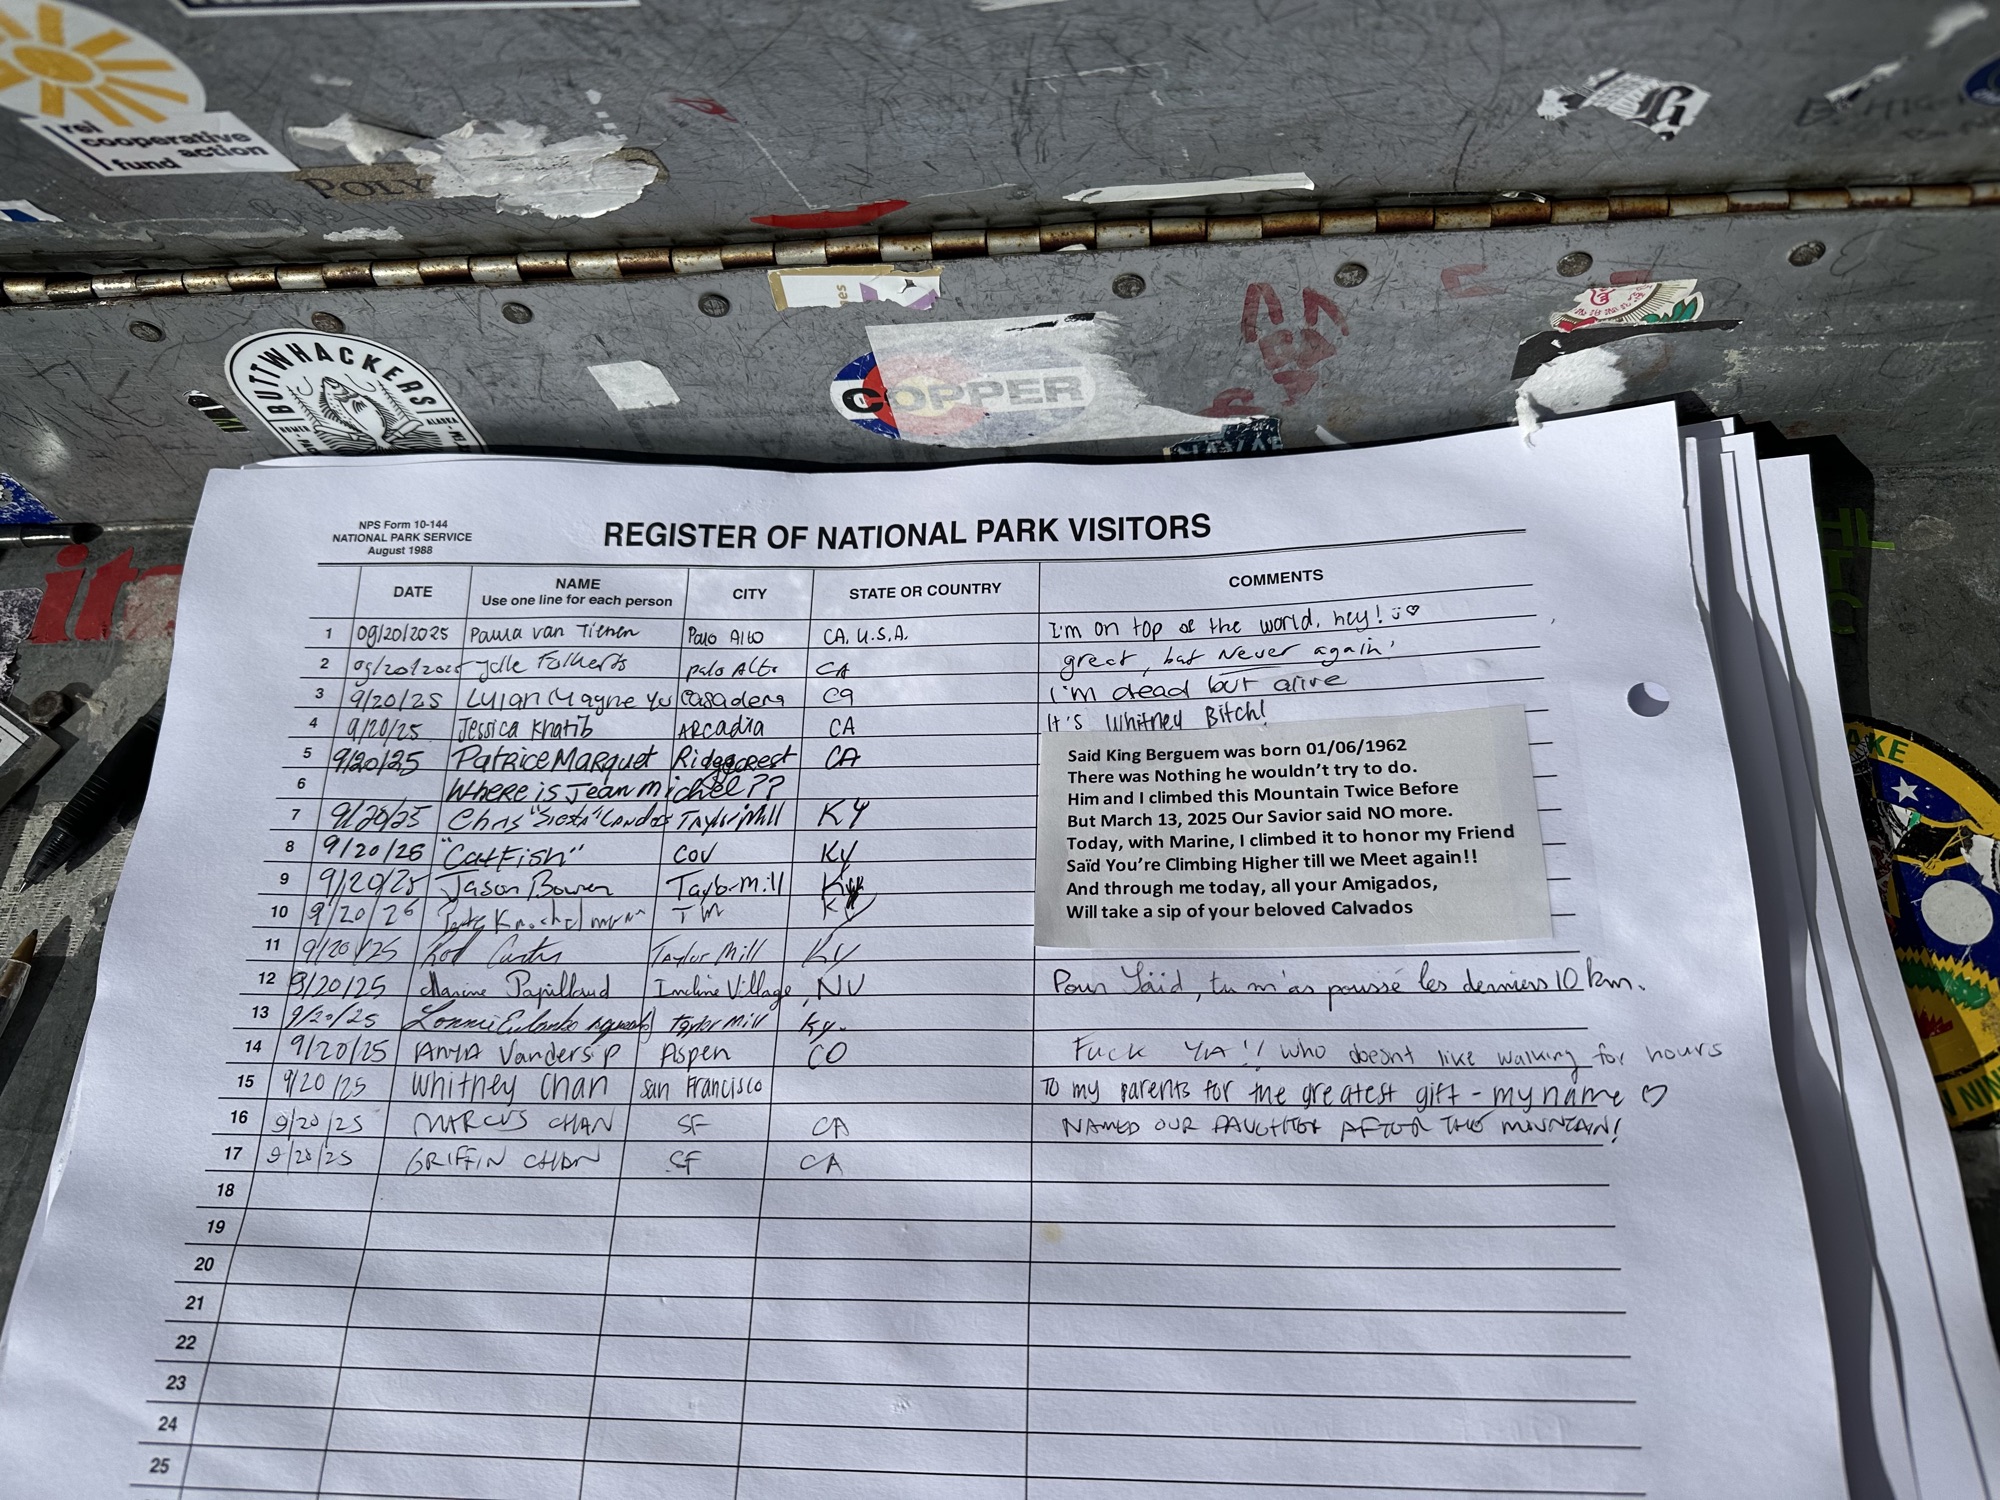 rei
cooperative
action
fund
POLY
BUTTWHACKERS
HOMER
ALASKA
COPPER
it
NPS Form 10-144
NATIONAL PARK SERVICE
August 1988
REGISTER OF NATIONAL PARK VISITORS
DATE NAME CITY STATE OR COUNTRY COMMENTS
Use one line for each person
1 09/20/2025 Paula van Tienen Palo Alto CA, U.S.A. I'm on top of the world, hey!
2 Palo Alto CA great, but Never again!
3 9/20/25 I'm dead but alive
4 9/20/25 Jessica Khatib Arcadia CA It's Whitney Bitch!
5 9/20/25 Patrice Marquet Ridgecrest CA
6 Where is Jean michel??
7 9/20/25 Chris "Siesta" Taylor Mill KY
8 9/20/25 "Catfish" COV KY
9 9/20/25 Jason Bowen Taylor Mill
10 TM KY
11 9/20/25 Rod Taylor Mill KY
12 9/20/25 Marine Papillaud Incline Village, NV Pour Saïd, tu m'as poussé les derniers 10 km.
13 9/20/25 Lonnie Taylor Mill Ky.
14 9/20/25 Aspen CO Fuck YA!! who doesnt like walking for hours
15 9/20/25 Whitney Chan San Francisco To my parents for the greatest gift - my name ♡
16 9/20/25 MARCUS CHAN SF CA NAMED OUR DAUGHTER AFTER THIS MOUNTAIN!
17 9/20/25 GRIFFIN CHAN SF CA
18
19
20
21
22
23
24
25
Said King Berguem was born 01/06/1962
There was Nothing he wouldn't try to do.
Him and I climbed this Mountain Twice Before
But March 13, 2025 Our Savior said NO more.
Today, with Marine, I climbed it to honor my Friend
Saïd You're Climbing Higher till we Meet again!!
And through me today, all your Amigados,
Will take a sip of your beloved Calvados